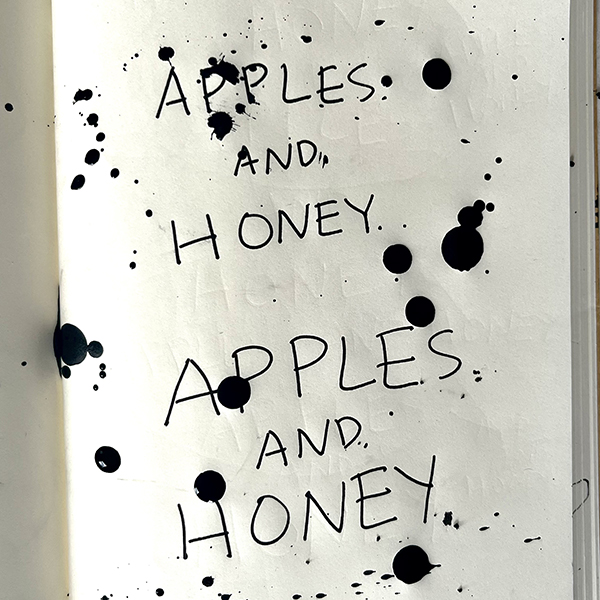 APPLES
AND
HONEY
APPLES
AND
HONEY